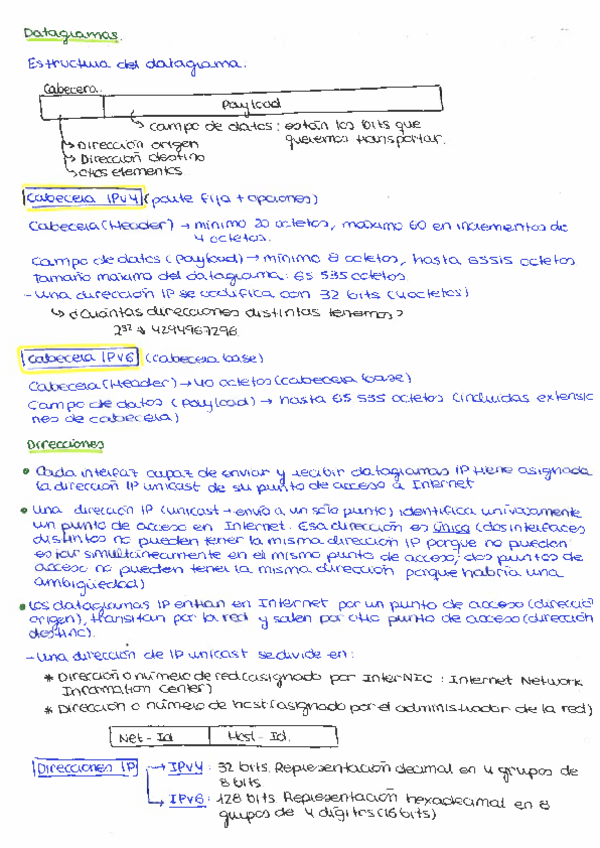 Datagramas.
Estructura del datagrama.
Cabecera.
Payload
campo de datos: están los bits que
queremos transportar.
Dirección origen
Dirección destino
Otros elementos
Cabecera IPv4 (parte fija + opciones)
Cabecera (Header) → mínimo 20 octetos, máximo 60 en incrementos de
4 octetos.
Campo de datos (payload) → mínimo 8 octetos, hasta 65515 octetos
Tamaño máximo del datagrama: 65 535 octetos
- Una dirección IP se codifica con 32 bits (4 octetos)
↳ ¿Cuántas direcciones distintas tenemos?
2³² → 4294967296.
Cabecera IPV6 (cabecera base)
Cabecera (Header) → 40 octetos (cabecera base)
Campo de datos (payload) → hasta 65 535 octetos (incluidas extensio
nes de cabecera)
Direcciones
• Cada interfaz capaz de enviar y recibir datagramas IP tiene asignada
la dirección IP unicast de su punto de acceso a Internet
• Una dirección IP (unicast → envío a un sólo punto) identifica unívocamente
un punto de acceso en Internet. Esa dirección es única (dos interfaces
distintos no pueden tener la misma dirección IP porque no pueden
estar simultáneamente en el mismo punto de acceso; dos puntos de
acceso no pueden tener la misma dirección porque habría una
ambigüedad)
• Los datagramas IP entran en Internet por un punto de acceso (direcció
origen), transitan por la red y salen por otro punto de acceso (dirección
destino).
- Una dirección de IP unicast se divide en:
* Dirección o número de red (asignado por InterNIC: Internet Network
Information Center)
* Dirección o número de host (asignado por el administrador de la red)
Net-Id Host-Id.
Direcciones IP → IPv4: 32 bits. Representación decimal en 4 grupos de
8 bits
→ IPv6: 128 bits. Representación hexadecimal en 8
grupos de 4 dígitos (16 bits)